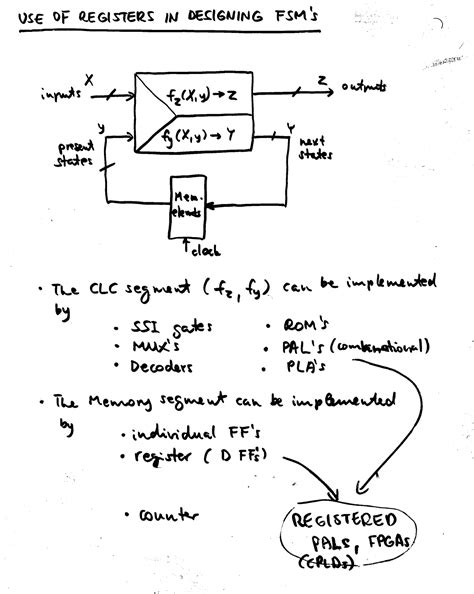 USE OF REGISTERS IN DESIGNING FSM's
X
inputs
f_z(X,y) → Z
Z
outputs
y
present
states
f_y(X,y) → Y
Y
next
states
Mem.
elements
clock
• The CLC segment (f_z, f_y) can be implemented
by
• SSI gates
• ROM's
• MUX's
• PAL's (combinational)
• Decoders
• PLA's
• The Memory segment can be implemented
by
• individual FF's
• register (D FF's)
• counter
REGISTERED
PALs, FPGAs
(EPLDs)